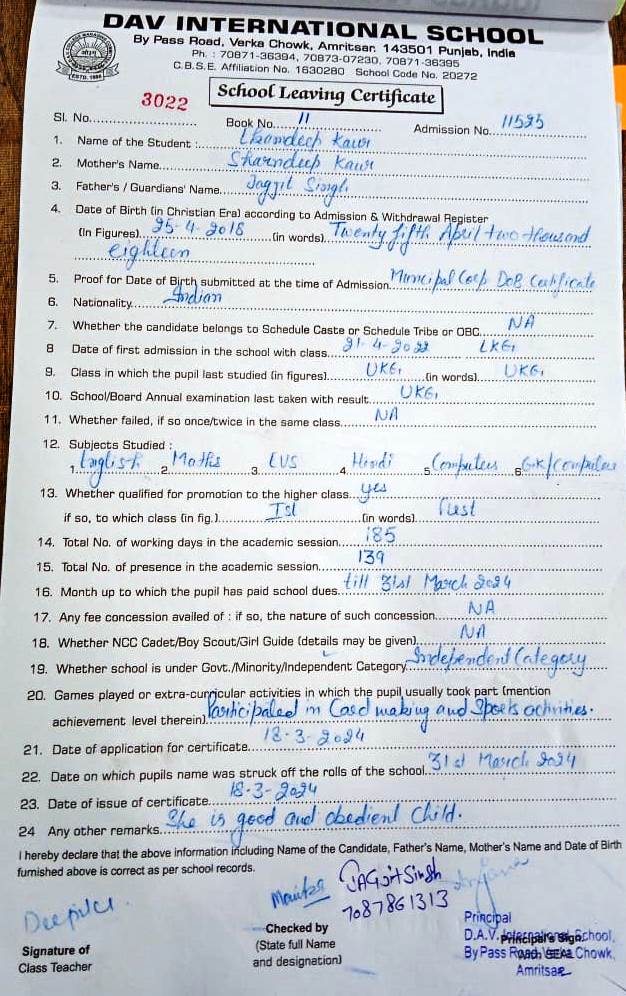 DAV INTERNATIONAL SCHOOL
By Pass Road, Verka Chowk, Amritsar. 143501 Punjab, India
Ph. : 70871-36394, 70873-07230, 70871-36395
C.B.S.E. Affiliation No. 1630280 School Code No. 20272
ESTD. 1886
School Leaving Certificate
3022
Sl. No. Book No. 11 Admission No. 11525
1. Name of the Student : Kaur
2. Mother's Name Sharndeep Kaur
3. Father's / Guardians' Name Jagjit Singh
4. Date of Birth (in Christian Era) according to Admission & Withdrawal Register
(In Figures) 25-4-2018 (in words) Twenty fifth April two thousand
eighteen
5. Proof for Date of Birth submitted at the time of Admission Muncipal Corp DoB Certificate
6. Nationality Indian
7. Whether the candidate belongs to Schedule Caste or Schedule Tribe or OBC NA
8 Date of first admission in the school with class 21-4-2022 LKG
9. Class in which the pupil last studied (in figures) UKG (in words) UKG
10. School/Board Annual examination last taken with result UKG
11. Whether failed, if so once/twice in the same class NA
12. Subjects Studied :
1. English 2. Maths 3. EVS 4. Hindi 5. Computers 6. G.K/Computer
13. Whether qualified for promotion to the higher class yes
if so, to which class (in fig.) Ist (in words) First
14. Total No. of working days in the academic session 185
15. Total No. of presence in the academic session 139
16. Month up to which the pupil has paid school dues till 31st March 2024
17. Any fee concession availed of : if so, the nature of such concession NA
18. Whether NCC Cadet/Boy Scout/Girl Guide (details may be given) NA
19. Whether school is under Govt./Minority/Independent Category Independent Category
20. Games played or extra-curricular activities in which the pupil usually took part (mention
achievement level therein) Participated in Card making and Sports activities.
21. Date of application for certificate 18-3-2024
22. Date on which pupils name was struck off the rolls of the school 31st March 2024
23. Date of issue of certificate 18-3-2024
24 Any other remarks She is good and obedient child.
I hereby declare that the above information including Name of the Candidate, Father's Name, Mother's Name and Date of Birth
furnished above is correct as per school records.
JAGJIT Singh
7087861313
Signature of
Class Teacher
Checked by
(State full Name
and designation)
Principal
D.A.V. International School,
Principal's Sign.
By Pass Road, Verka Chowk,
with SEAL
Amritsar